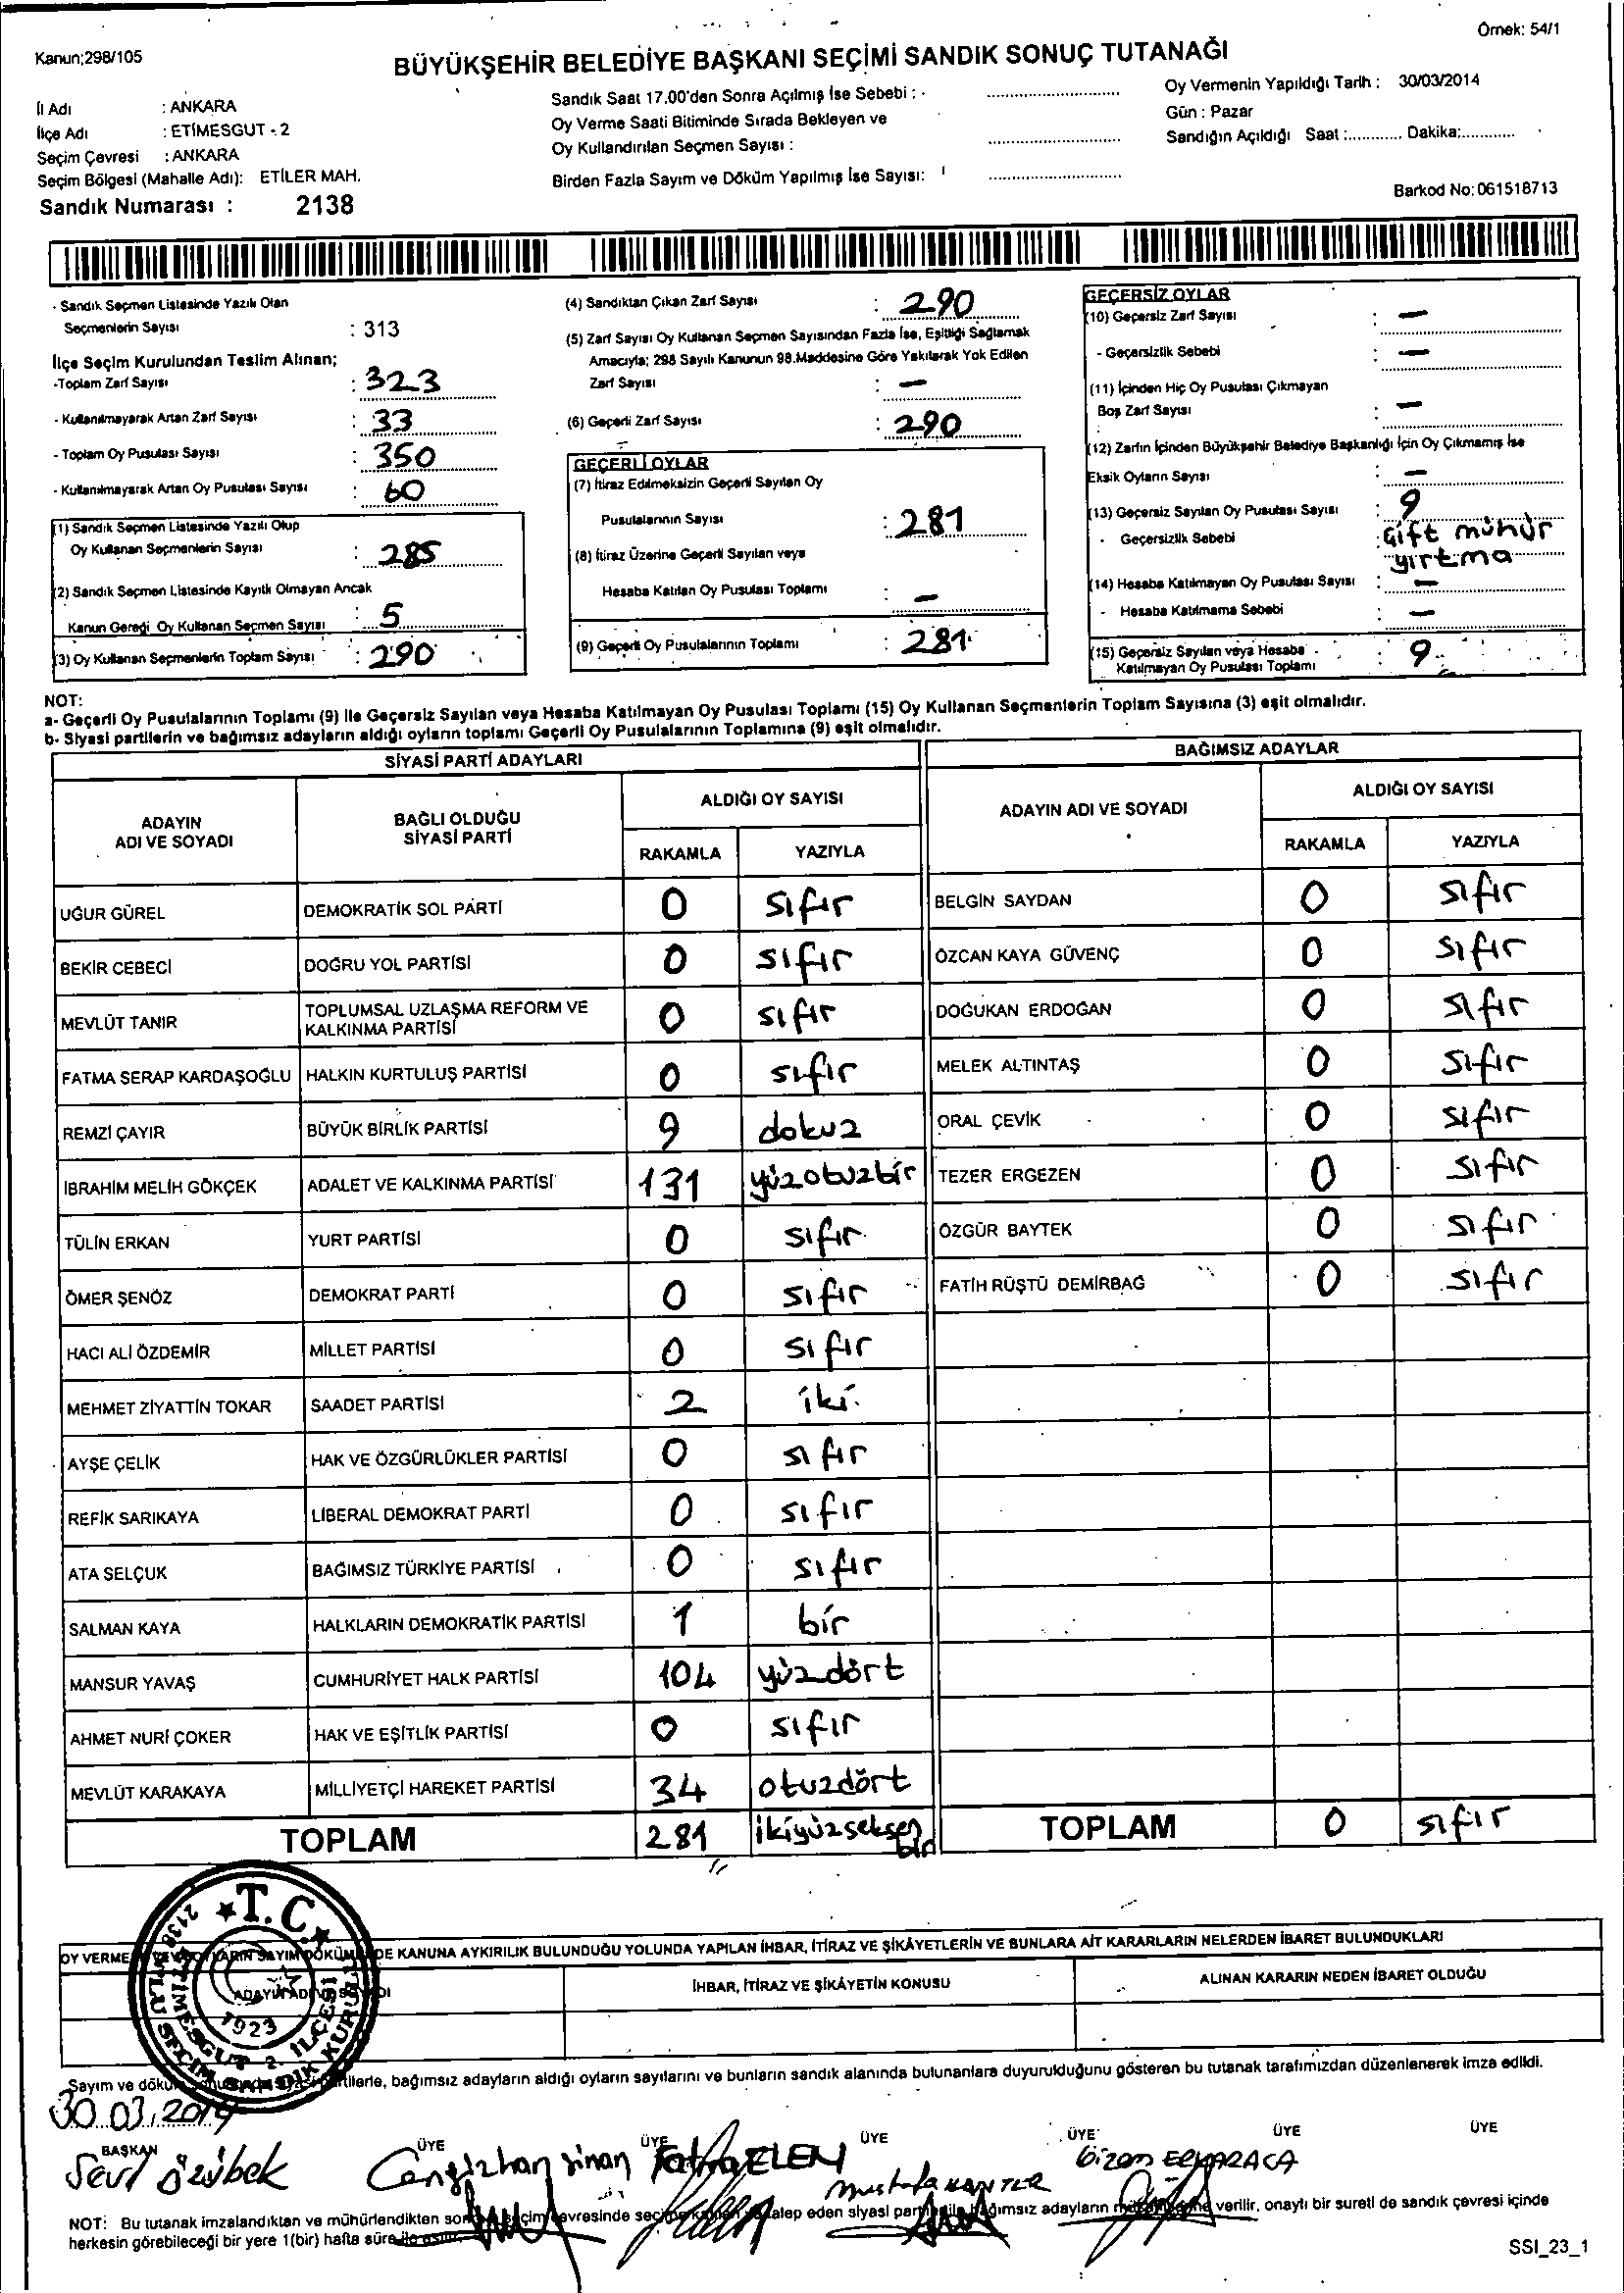 Örnek: 54/1
Kanun;298/105
BÜYÜKŞEHİR BELEDİYE BAŞKANI SEÇİMİ SANDIK SONUÇ TUTANAĞI
İl Adı : ANKARA
İlçe Adı : ETİMESGUT - 2
Seçim Çevresi : ANKARA
Seçim Bölgesi (Mahalle Adı): ETİLER MAH.
Sandık Numarası : 2138
Sandık Saat 17.00'den Sonra Açılmış İse Sebebi :
Oy Verme Saati Bitiminde Sırada Bekleyen ve
Oy Kullandırılan Seçmen Sayısı :
Birden Fazla Sayım ve Döküm Yapılmış İse Sayısı:
Oy Vermenin Yapıldığı Tarih : 30/03/2014
Gün : Pazar
Sandığın Açıldığı Saat :............ Dakika:............
Barkod No: 061518713
- Sandık Seçmen Listesinde Yazılı Olan
Seçmenlerin Sayısı : 313
İlçe Seçim Kurulundan Teslim Alınan;
-Toplam Zarf Sayısı : 323
- Kullanılmayarak Artan Zarf Sayısı : 33
- Toplam Oy Pusulası Sayısı : 350
- Kullanılmayarak Artan Oy Pusulası Sayısı : 60
(1) Sandık Seçmen Listesinde Yazılı Olup
Oy Kullanan Seçmenlerin Sayısı : 285
(2) Sandık Seçmen Listesinde Kayıtlı Olmayan Ancak
Kanun Gereği Oy Kullanan Seçmen Sayısı : 5
(3) Oy Kullanan Seçmenlerin Toplam Sayısı : 290
(4) Sandıktan Çıkan Zarf Sayısı : 290
(5) Zarf Sayısı Oy Kullanan Seçmen Sayısından Fazla İse, Eşitliği Sağlamak
Amacıyla; 298 Sayılı Kanunun 98.Maddesine Göre Yakılarak Yok Edilen
Zarf Sayısı : —
(6) Geçerli Zarf Sayısı : 290
GEÇERLİ OYLAR
(7) İtiraz Edilmeksizin Geçerli Sayılan Oy
Pusulalarının Sayısı : 281
(8) İtiraz Üzerine Geçerli Sayılan veya
Hesaba Katılan Oy Pusulası Toplamı : —
(9) Geçerli Oy Pusulalarının Toplamı : 281
GEÇERSİZ OYLAR
(10) Geçersiz Zarf Sayısı : —
- Geçersizlik Sebebi : —
(11) İçinden Hiç Oy Pusulası Çıkmayan
Boş Zarf Sayısı : —
(12) Zarfın İçinden Büyükşehir Belediye Başkanlığı İçin Oy Çıkmamış İse
Eksik Oyların Sayısı : —
(13) Geçersiz Sayılan Oy Pusulası Sayısı : 9
- Geçersizlik Sebebi : Çift mühür
yırtma
(14) Hesaba Katılmayan Oy Pusulası Sayısı : —
- Hesaba Katılmama Sebebi : —
(15) Geçersiz Sayılan veya Hesaba
Katılmayan Oy Pusulası Toplamı : 9
NOT:
a- Geçerli Oy Pusulalarının Toplamı (9) ile Geçersiz Sayılan veya Hesaba Katılmayan Oy Pusulası Toplamı (15) Oy Kullanan Seçmenlerin Toplam Sayısına (3) eşit olmalıdır.
b- Siyasi partilerin ve bağımsız adayların aldığı oyların toplamı Geçerli Oy Pusulalarının Toplamına (9) eşit olmalıdır.
SİYASİ PARTİ ADAYLARI
ADAYIN ADI VE SOYADI BAĞLI OLDUĞU SİYASİ PARTİ ALDIĞI OY SAYISI
RAKAMLA YAZIYLA
UĞUR GÜREL DEMOKRATİK SOL PARTİ 0 sıfır
BEKİR CEBECİ DOĞRU YOL PARTİSİ 0 sıfır
MEVLÜT TANIR TOPLUMSAL UZLAŞMA REFORM VE KALKINMA PARTİSİ 0 sıfır
FATMA SERAP KARDAŞOĞLU HALKIN KURTULUŞ PARTİSİ 0 sıfır
REMZİ ÇAYIR BÜYÜK BİRLİK PARTİSİ 9 dokuz
İBRAHİM MELİH GÖKÇEK ADALET VE KALKINMA PARTİSİ 131 yüzotuzbir
TÜLİN ERKAN YURT PARTİSİ 0 sıfır
ÖMER ŞENÖZ DEMOKRAT PARTİ 0 sıfır
HACI ALİ ÖZDEMİR MİLLET PARTİSİ 0 sıfır
MEHMET ZİYATTİN TOKAR SAADET PARTİSİ 2 iki
AYŞE ÇELİK HAK VE ÖZGÜRLÜKLER PARTİSİ 0 sıfır
REFİK SARIKAYA LİBERAL DEMOKRAT PARTİ 0 sıfır
ATA SELÇUK BAĞIMSIZ TÜRKİYE PARTİSİ 0 sıfır
SALMAN KAYA HALKLARIN DEMOKRATİK PARTİSİ 1 bir
MANSUR YAVAŞ CUMHURİYET HALK PARTİSİ 104 yüzdört
AHMET NURİ ÇOKER HAK VE EŞİTLİK PARTİSİ 0 sıfır
MEVLÜT KARAKAYA MİLLİYETÇİ HAREKET PARTİSİ 34 otuzdört
TOPLAM 281 ikiyüzseksen bir
BAĞIMSIZ ADAYLAR
ADAYIN ADI VE SOYADI ALDIĞI OY SAYISI
RAKAMLA YAZIYLA
BELGİN SAYDAN 0 sıfır
ÖZCAN KAYA GÜVENÇ 0 sıfır
DOĞUKAN ERDOĞAN 0 sıfır
MELEK ALTINTAŞ 0 sıfır
ORAL ÇEVİK 0 sıfır
TEZER ERGEZEN 0 sıfır
ÖZGÜR BAYTEK 0 sıfır
FATİH RÜŞTÜ DEMİRBAĞ 0 sıfır
TOPLAM 0 sıfır
T.C.
1923
OY VERME SAYIM DÖKÜM DE KANUNA AYKIRILIK BULUNDUĞU YOLUNDA YAPILAN İHBAR, İTİRAZ VE ŞİKÂYETLERİN VE BUNLARA AİT KARARLARIN NELERDEN İBARET BULUNDUKLARI
İHBAR, İTİRAZ VE ŞİKÂYETİN KONUSU ALINAN KARARIN NEDEN İBARET OLDUĞU
Sayım ve bağımsız adayların aldığı oyların sayılarını ve bunların sandık alanında bulunanlara duyurulduğunu gösteren bu tutanak tarafımızdan düzenlenerek imza edildi.
30.03.2014
BAŞKAN ÜYE ÜYE ÜYE ÜYE ÜYE ÜYE
Cengizhan Sinan Fatma ELEN Mustafa KANTER Gizem
NOT: Bu tutanak imzalandıktan ve mühürlendikten talep eden siyasi bağımsız adayların verilir, onaylı bir sureti de sandık çevresi içinde
herkesin görebileceği bir yere 1(bir) hafta süre ile asılır.
SSI_23_1